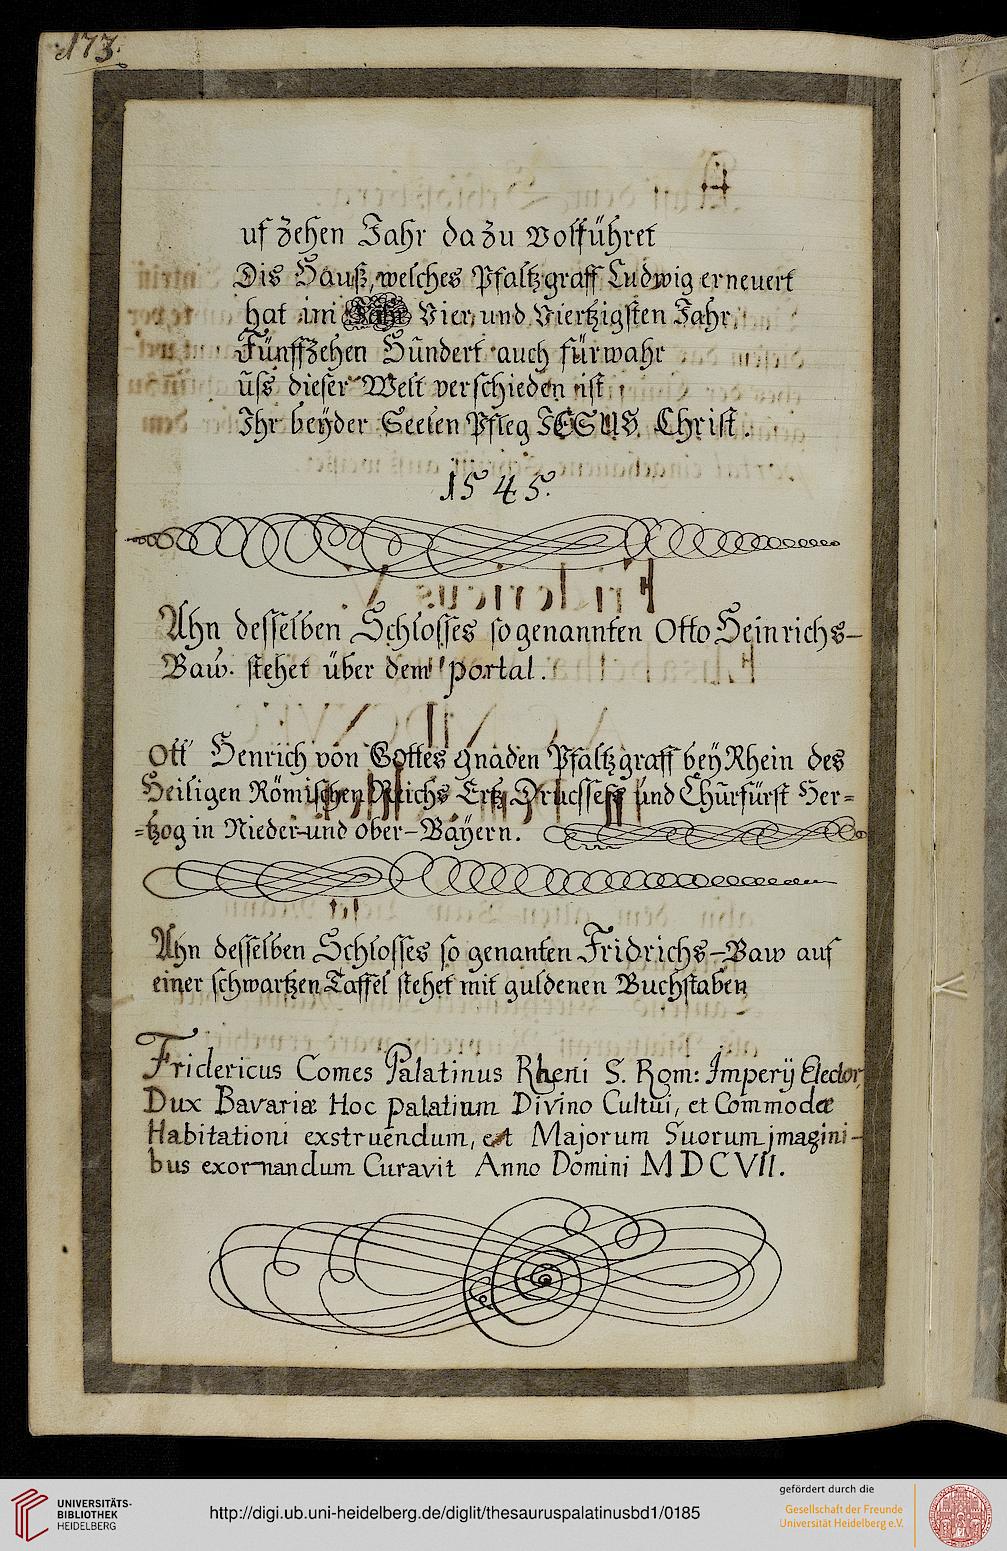 173.
uf zehen Jahr dazu volführet
Dis Hauß, welches Pfaltzgraff Ludwig erneuert
hat im Vier und Viertzigsten Jahr
Fünffzehen Hundert auch fürwahr
uss dieser Welt verschieden ist
Ihr beyder Seelen Pfleg JESUS Christ.
1545.
Ahn desselben Schlosses so genannten Otto Heinrichs-
Baw. stehet über dem portal.
Ott Henrich von Gottes gnaden Pfaltzgraff bey Rhein des
Heiligen Römischen Reichs Ertz Drucsses und Churfürst Her=
=tzog in Nieder-und ober-Bayern.
Ahn desselben Schlosses so genanten Fridrichs-Baw auf
einer schwartzen Taffel stehet mit guldenen Buchstaben
Fridericus Comes Palatinus Rheni S. Rom: Imperij Elector
Dux Bavariæ Hoc palatium Divino Cultui, et Commodæ
Habitationi exstruendum, et Majorum Suorum jmagini-
bus exornandum Curavit Anno Domini MDCVII.
UNIVERSITÄTS-
BIBLIOTHEK
HEIDELBERG
http://digi.ub.uni-heidelberg.de/diglit/thesauruspalatinusbd1/0185
gefördert durch die
Gesellschaft der Freunde
Universität Heidelberg e.V.